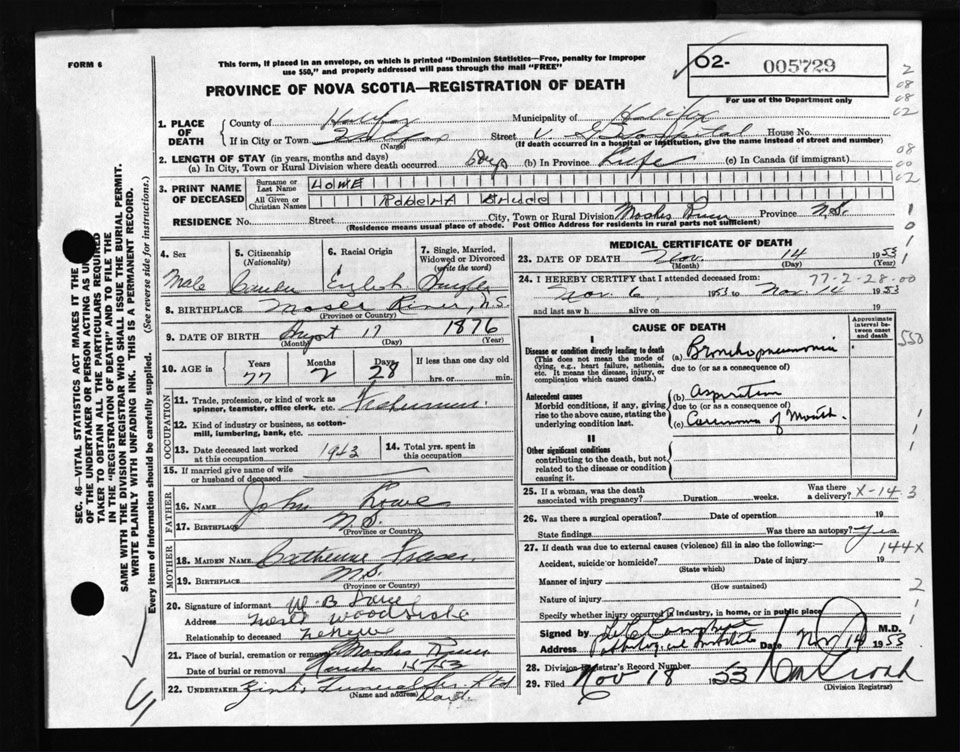 FORM 6
This form, if placed in an envelope, on which is printed "Dominion Statistics—Free, penalty for improper
use $50," and properly addressed will pass through the mail "FREE"
PROVINCE OF NOVA SCOTIA—REGISTRATION OF DEATH
02- 005729
For use of the Department only
1. PLACE OF DEATH
County of Halifax Municipality of Halifax
If in City or Town Halifax Street V. G. Hospital House No.
(Name) (If death occurred in a hospital or institution, give the name instead of street and number)
2. LENGTH OF STAY (in years, months and days)
(a) In City, Town or Rural Division where death occurred 6 Days (b) In Province Life (c) In Canada (if immigrant)
3. PRINT NAME OF DECEASED
Surname or Last Name LOWE
All Given or Christian Names
RESIDENCE No. Street City, Town or Rural Division Moshes River Province N.S.
(Residence means usual place of abode. Post Office Address for residents in rural parts not sufficient)
4. Sex Male
5. Citizenship (Nationality)
6. Racial Origin English
7. Single, Married, Widowed or Divorced (write the word) Single
8. BIRTHPLACE Moser River, N.S.
(Province or Country)
9. DATE OF BIRTH August 17 1876
(Month) (Day) (Year)
10. AGE in Years 77 Months 2 Days 28 If less than one day old hrs. or min.
OCCUPATION
11. Trade, profession, or kind of work as spinner, teamster, office clerk, etc. Fisherman
12. Kind of industry or business, as cotton-mill, lumbering, bank, etc.
13. Date deceased last worked at this occupation 1943
14. Total yrs. spent in this occupation
15. If married give name of wife or husband of deceased
FATHER
16. NAME John Lowe
17. BIRTHPLACE N.S.
(Province or Country)
MOTHER
18. MAIDEN NAME Catherine Fraser
19. BIRTHPLACE N.S.
(Province or Country)
20. Signature of informant W. B. Lowe
Address Woodside
Relationship to deceased Nephew
21. Place of burial, cremation or removal Moshes River
Date of burial or removal 15/53
22. UNDERTAKER Zinks Funeral Ltd
(Name and address) Dart.
MEDICAL CERTIFICATE OF DEATH
23. DATE OF DEATH Nov. 14 1953
(Month) (Day) (Year)
24. I HEREBY CERTIFY that I attended deceased from: 77-2-28-00
Nov. 6 1953 to Nov. 14 1953
and last saw h alive on 19
CAUSE OF DEATH
Approximate interval between onset and death
I
Disease or condition directly leading to death
(This does not mean the mode of dying, e.g., heart failure, asthenia, etc. It means the disease, injury, or complication which caused death.)
(a) Bronchopneumonia
due to (or as a consequence of)
Antecedent causes
Morbid conditions, if any, giving rise to the above cause, stating the underlying condition last.
(b) Aspiration
due to (or as a consequence of)
(c) Carcinoma of Mouth.
II
Other significant conditions
contributing to the death, but not related to the disease or condition causing it.
25. If a woman, was the death associated with pregnancy? Duration weeks. Was there a delivery? X-14 3
26. Was there a surgical operation? Date of operation 19
State findings Was there an autopsy? Yes
27. If death was due to external causes (violence) fill in also the following:— 144X
Accident, suicide or homicide? (State which)
Manner of injury (How sustained)
Nature of injury
Specify whether injury occurred in industry, in home, or in public place
Signed by M.D.
Address Pathological Institute Date Nov 14 1953
28. Division Registrar's Record Number
29. Filed Nov 18 1953
(Division Registrar)
SEC. 46—VITAL STATISTICS ACT MAKES IT THE
OF THE UNDERTAKER OR PERSON ACTING AS
TAKER TO OBTAIN ALL THE PARTICULARS REQUIRED
IN THE "REGISTRATION OF DEATH" AND TO FILE THE
SAME WITH THE DIVISION REGISTRAR WHO SHALL ISSUE THE BURIAL PERMIT.
WRITE PLAINLY WITH UNFADING INK. THIS IS A PERMANENT RECORD.
Every item of information should be carefully supplied. (See reverse side for instructions.)
550